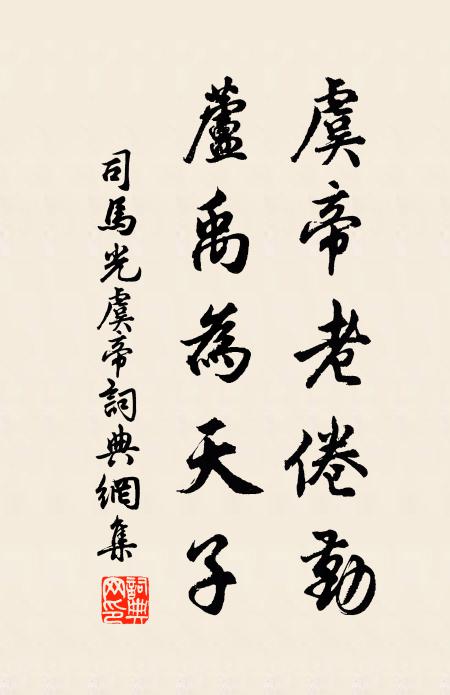 虞帝老倦勤
蘆禹為天子
司馬光虞帝詞典網集
詞典网印